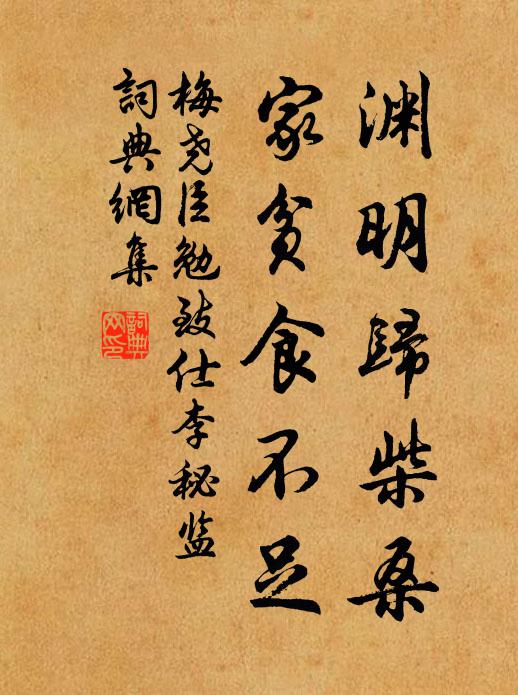 渊明歸柴桑
家貧食不足
梅尧臣勉致仕李秘监
詞典網集
詞典网印